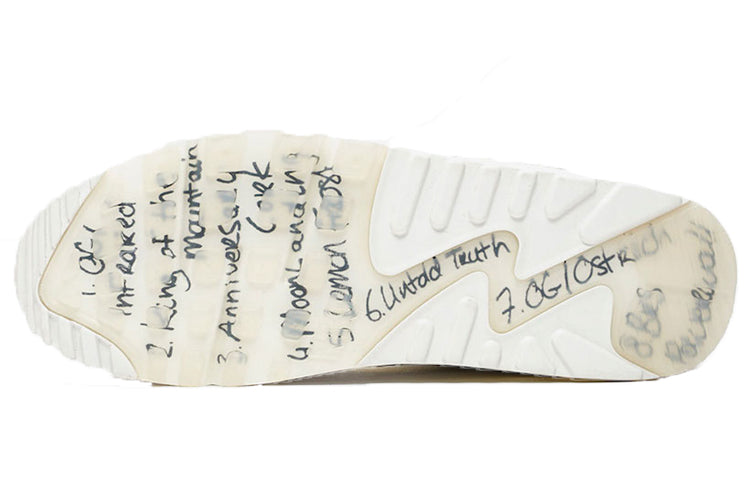 1. OG/
Infrared
2. King of the
Mountain
3. Anniversary
Cork
4. Moon Landing
5. Lemon Frost
6. Untold Truth
7. OG/Ostrich
8